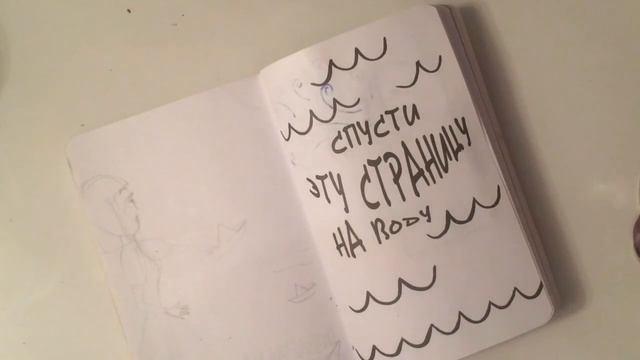 СПУСТИ
ЭТУ СТРАНИЦУ
НА ВОДУ